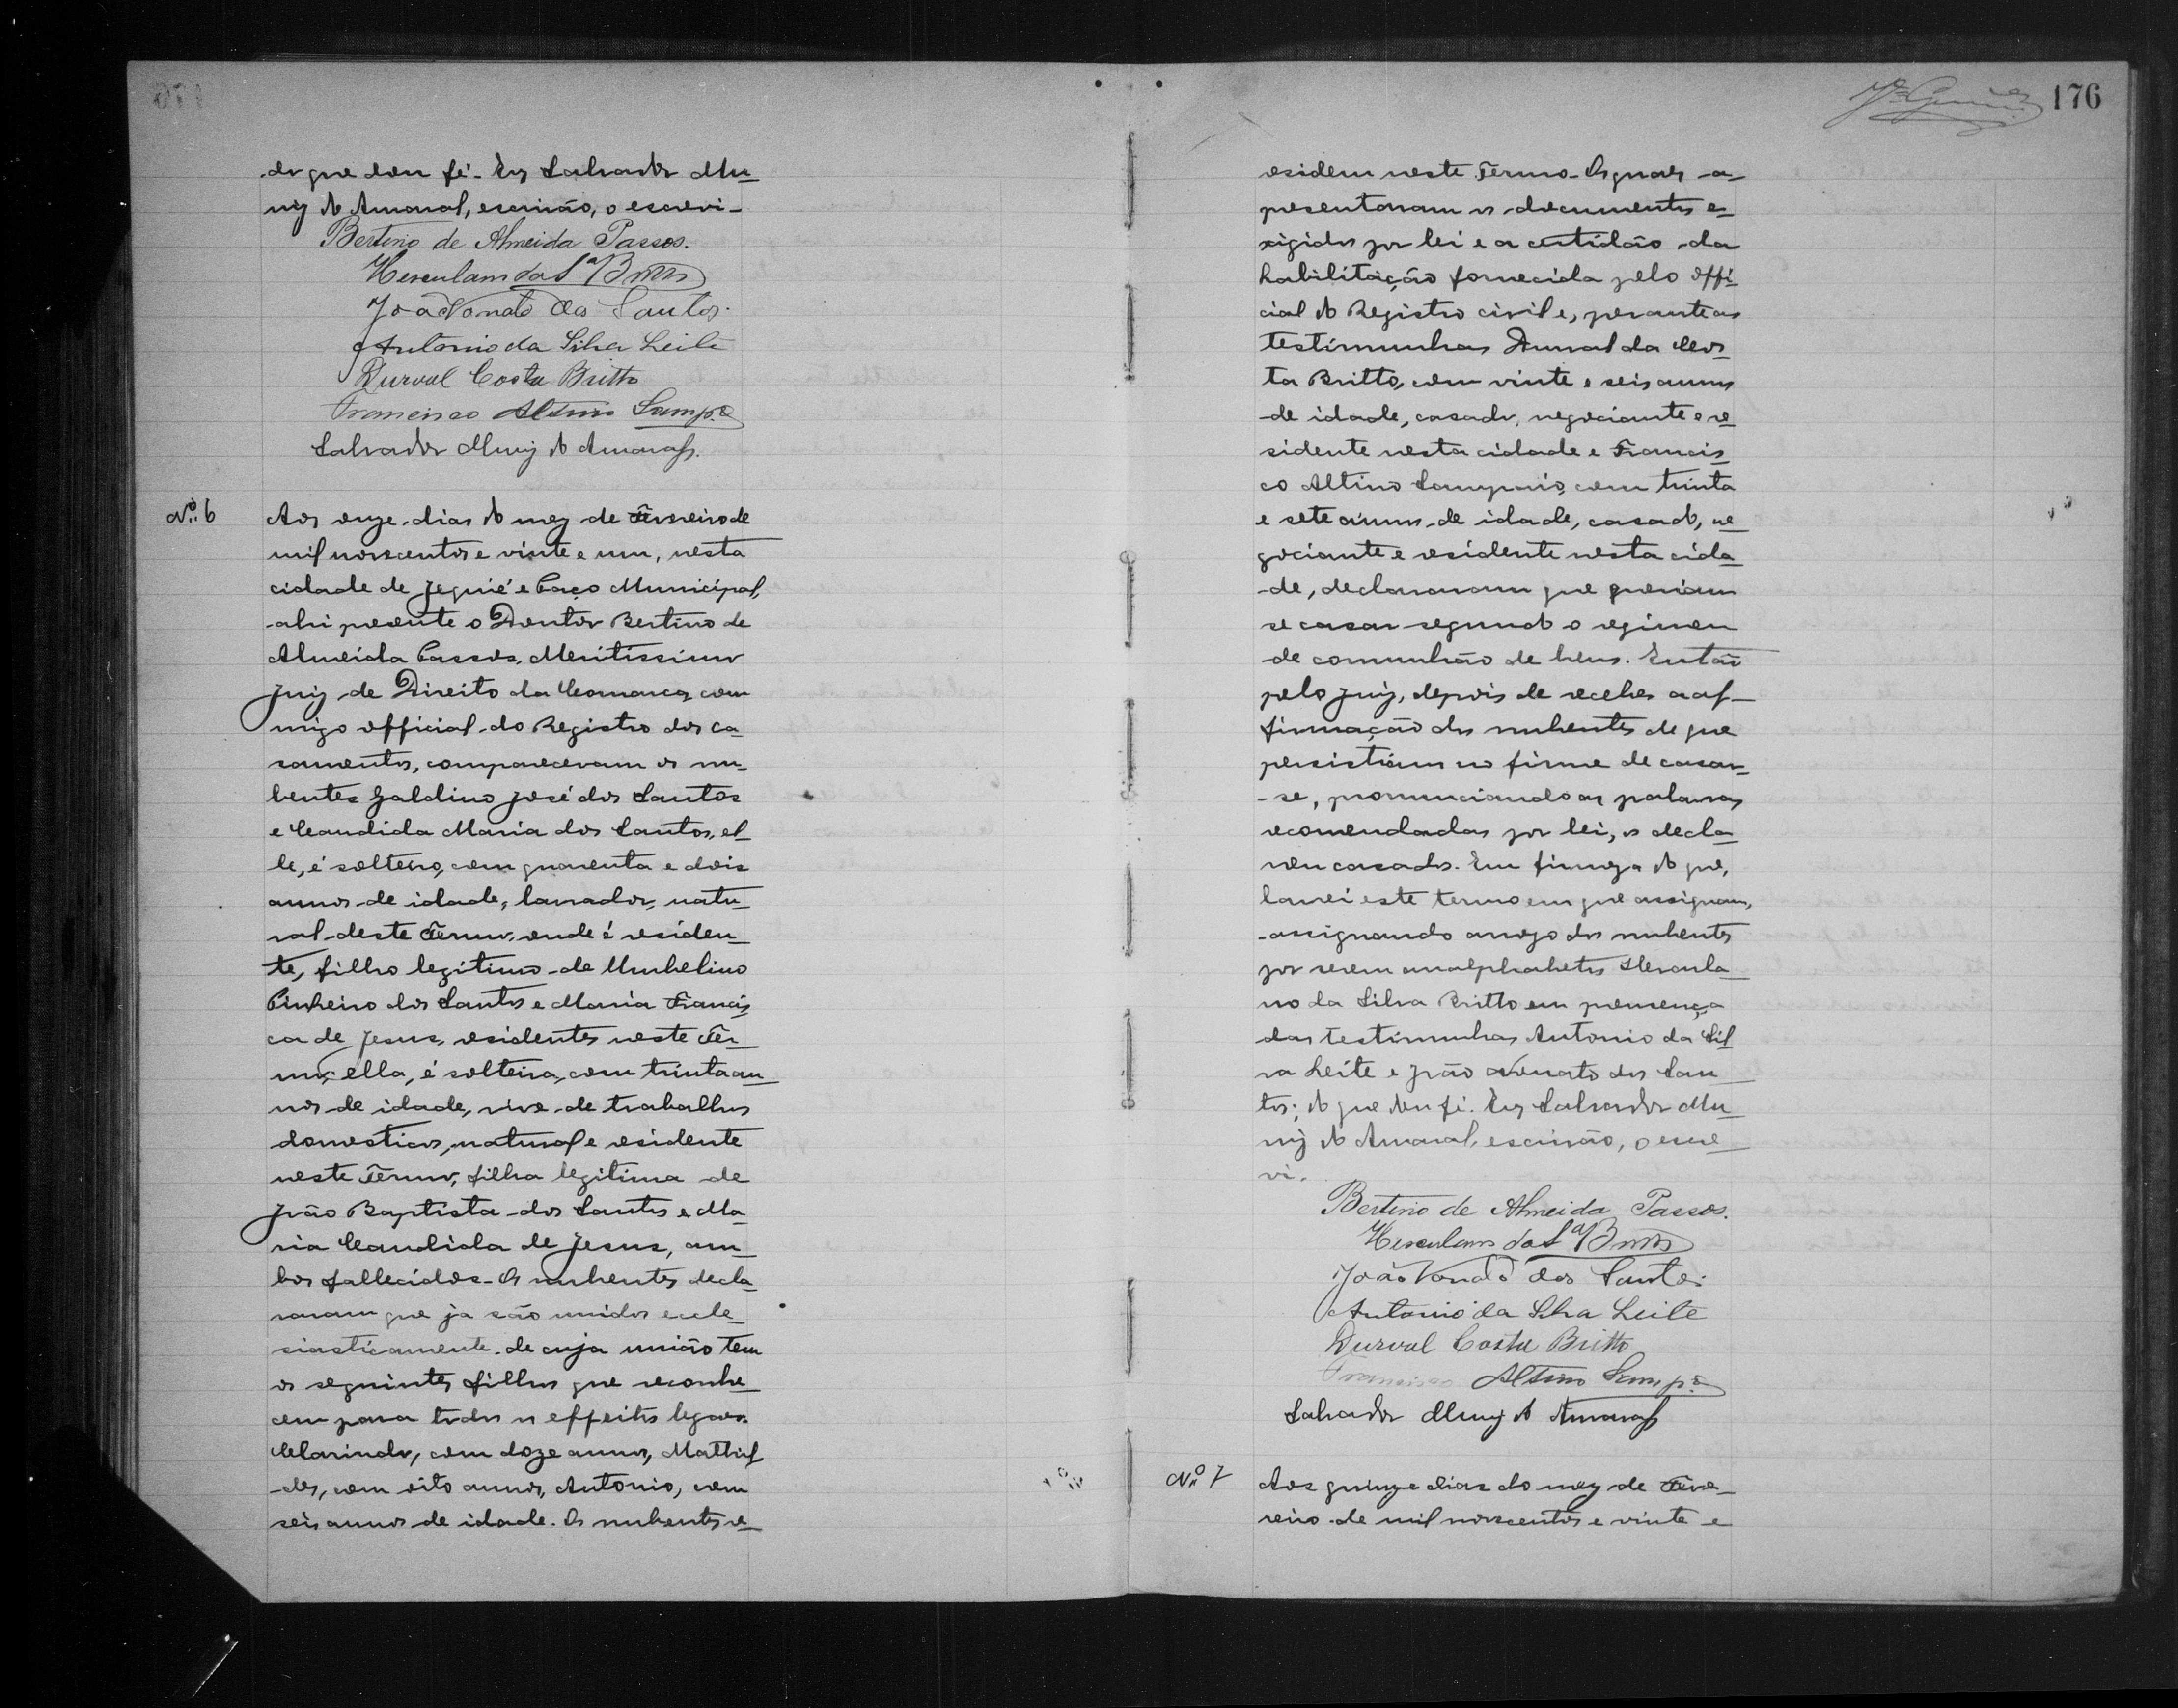 do que dou fé. Eu Salvador Mu
niz do Amaral, escrivão, o escrevi.
Bertino de Almeida Passos.
Herculano da Sª Britto
João Donato dos Santos.
Antonio da Silva Leite
Durval Costa Britto
Francisco Altino Sampº
Salvador Muniz do Amaral.
Nº 6
Aos onze dias do mez de Fevereiro de
mil novecentos e vinte e um, nesta
cidade de Jequié e Paço Municipal,
ahi presente o Doutor Bertino de
Almeida Passos, Meritissimo
Juiz de Direito da Comarca, com
migo official do Registro dos ca
samentos, compareceram os nu
bentes Galdino José dos Santos
e Candida Maria dos Santos, el
le, é solteiro, com quarenta e dois
annos de idade, lavrador, natu
ral deste Termo, onde é residen
te, filho legitimo de Umbelino
Pinheiro dos Santos e Maria Francis
ca de Jesus, residentes neste Ter
mo; ella, é solteira, com trinta an
nos de idade, vive de trabalhos
domesticos, natural e residente
neste Termo, filha legitima de
João Baptista dos Santos e Ma
ria Candida de Jesus, am
bos fallecidos. Os nubentes decla
raram que ja são unidos eccle
siasticamente de cuja união tem
os seguintes filhos que reconhe
cem para todos os effeitos legaes.
Clarindo, com doze annos, Mathil
des, com oito annos, Antonio, com
seis annos de idade. Os nubentes re
176
esidem neste Termo. Os quaes a
presentaram os documentos e
xigidos por lei e a certidão da
habilitação fornecida pelo Offi
cial do Registro civil e, perante as
testimunhas Durval da Cos
ta Britto, com vinte e seis annos
de idade, casado, negociante e re
sidente nesta cidade e Francis
co Altino Sampaio, com trinta
e sete annos de idade, casado, ne
gociante e residente nesta cida
de, declararam que queriam
se casar segundo o regimen
de comunhão de bens. Então
pelo Juiz, depois de receber a af
firmação dos nubentes de que
persistiam no firme de casar
-se, pronunciando as palavras
recomendadas por lei, os decla
rou casados. Em firmeza do que,
lavrei este termo em que assignam,
assignando a rogo dos nubentes
por serem analphabetos Hercula
no da Silva Britto em presença
das testimunhas Antonio da Sil
va Leite e João Donato dos San
tos; do que dou fé. Eu Salvador Mu
niz do Amaral, escrivão, o escre
vi.
Bertino de Almeida Passos.
Herculano da Sª Britto
João Donato dos Santos.
Antonio da Silva Leite
Durval Costa Britto
Francisco Altino Sampº
Salvador Muniz do Amaral
Nº 7
Aos quinze dias do mez de Feve
reiro de mil novecentos e vinte e